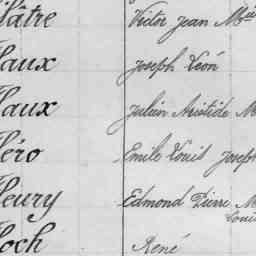 lâtre Victor Jean M
aux Joseph Léon
aux Julien Aristide M
éro Emile Louis Joseph
leury Edmond Pierre M
Louis
loch René